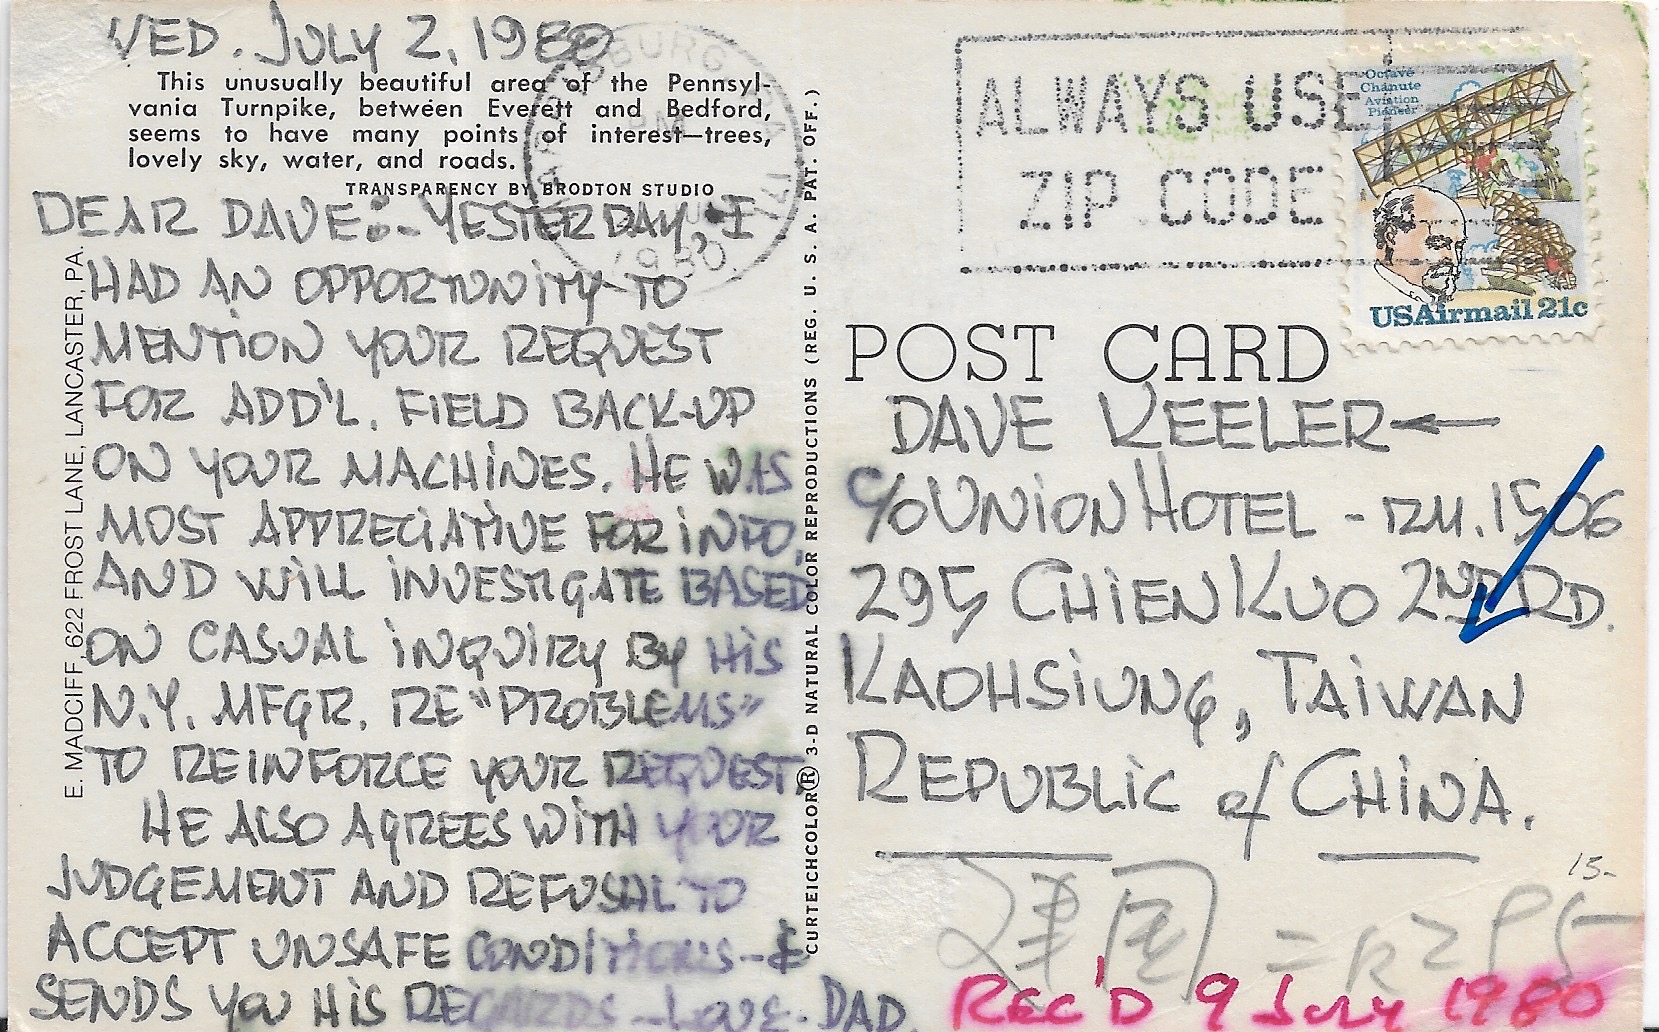 WED. JULY 2, 1980
This unusually beautiful area of the Pennsyl-
vania Turnpike, between Everett and Bedford,
seems to have many points of interest—trees,
lovely sky, water, and roads.
TRANSPARENCY BY BRODTON STUDIO
DEAR DAVE:- YESTERDAY, I
HAD AN OPPORTUNITY TO
MENTION YOUR REQUEST
FOR ADD'L. FIELD BACK-UP
ON YOUR MACHINES. HE WAS
MOST APPRECIATIVE FOR INFO,
AND WILL INVESTIGATE BASED
ON CASUAL INQUIRY BY HIS
N.Y. MFGR. RE "PROBLEMS"
TO REINFORCE YOUR REQUEST.
HE ALSO AGREES WITH YOUR
JUDGEMENT AND REFUSAL TO
ACCEPT UNSAFE CONDITIONS - &
SENDS YOU HIS REGARDS - LOVE - DAD.
E. MADCIFF, 622 FROST LANE, LANCASTER, PA.
CURTEICHCOLOR® 3-D NATURAL COLOR REPRODUCTIONS (REG. U. S. A. PAT. OFF.)
1980
ALWAYS USE
ZIP CODE
Octave
Chanute
Aviation
Pioneer
USAirmail 21c
POST CARD
DAVE KEELER ←
c/o UNION HOTEL - RM. 1506
295 CHIEN KUO 2ND RD.
KAOHSIUNG, TAIWAN
REPUBLIC of CHINA.
15-
建国 二 295
REC'D 9 July 1980